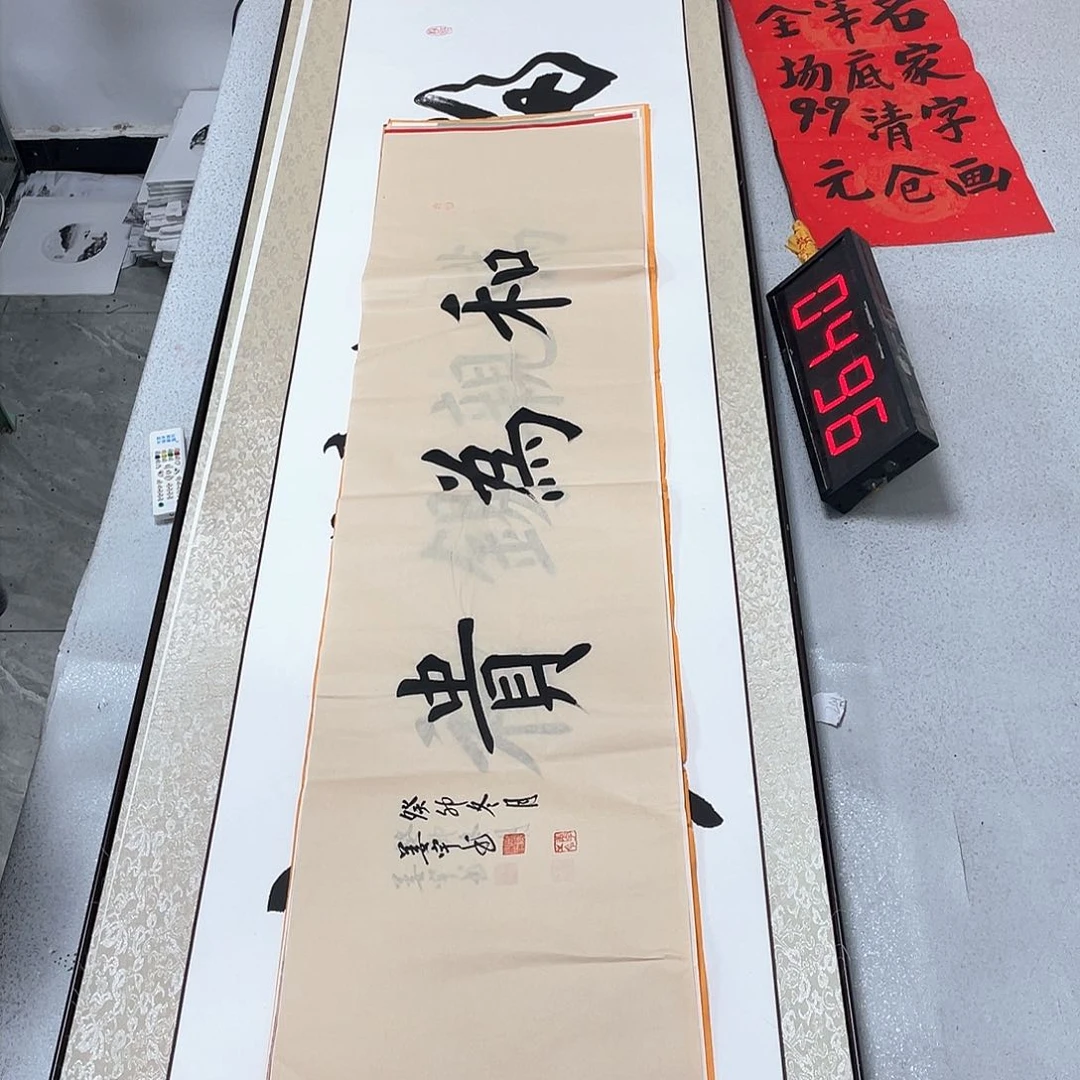 名家字画
年底清仓
全场99元
0496
和為貴
癸卯冬月